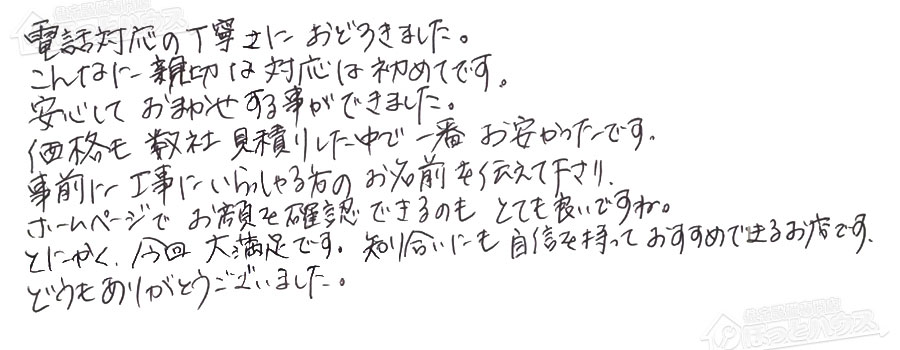 電話対応の丁寧さに おどろきました。
こんなに親切な対応は初めてです。
安心して おまかせする事ができました。
価格も 数社 見積りした中で 一番 お安かったです.
事前に 工事に いらっしゃる方の お名前を伝えて下さり.
ホームページで お顔を確認できるのも とても良いですね。
とにかく、今回 大満足です. 知り合いにも 自信を持って おすすめできるお店です.
どうもありがとうございました。
住宅設備専門店
ほっとハウス